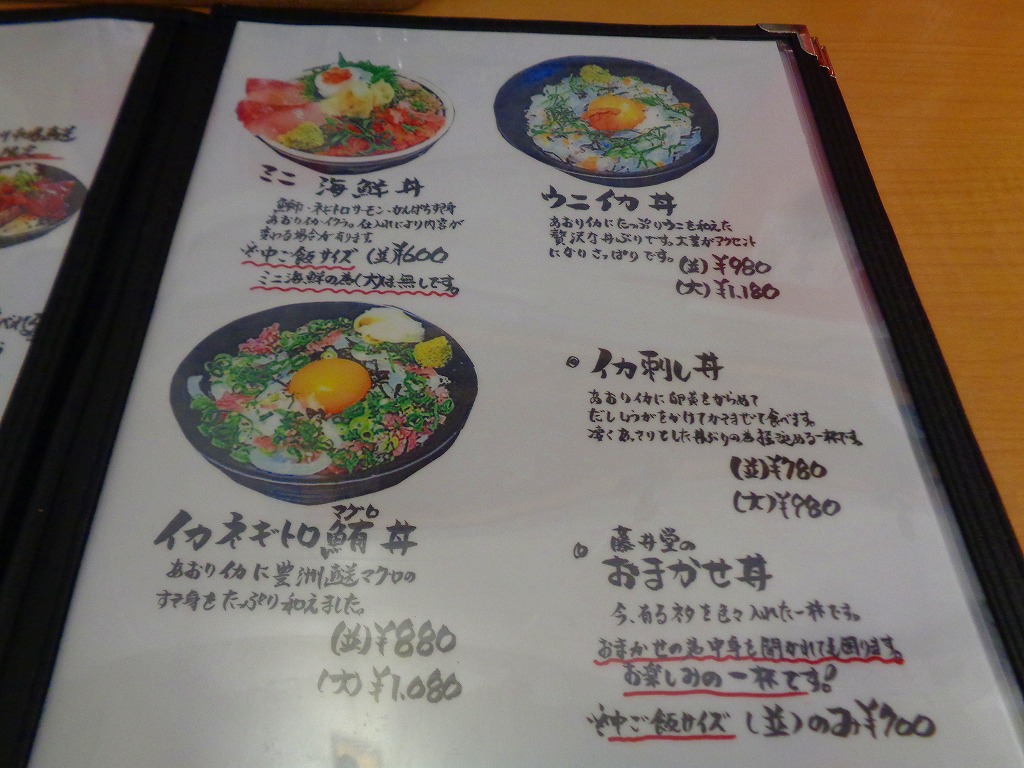 ミニ 海鮮丼
鯛・ネギトロ・サーモン・かんぱちすき身
あおりイカ・イクラ。仕入れにより内容が
変わる場合が有ります
※中ご飯サイズ (並)¥600
ミニ海鮮の為(大)は無しです。
ウニイカ丼
あおりイカにたっぷりウニを和えた
贅沢な丼ぶりです。大葉がアクセント
になりさっぱりです。
(並)¥980
(大)¥1,180
マグロ
イカネギトロ鮪丼
あおりイカに豊洲直送マグロの
すき身をたっぷり和えました。
(並)¥880
(大)¥1,080
イカ刺し丼
あおりイカに卵黄をからめて
だししょうがをかけてかきまぜて食べます。
(並)¥780
(大)¥980
藤井堂の
おまかせ丼
今、有るネタを色々入れた一杯です。
おまかせの為中身を聞かれても困ります。
お楽しみの一杯です!
※中ご飯サイズ (並)のみ¥700